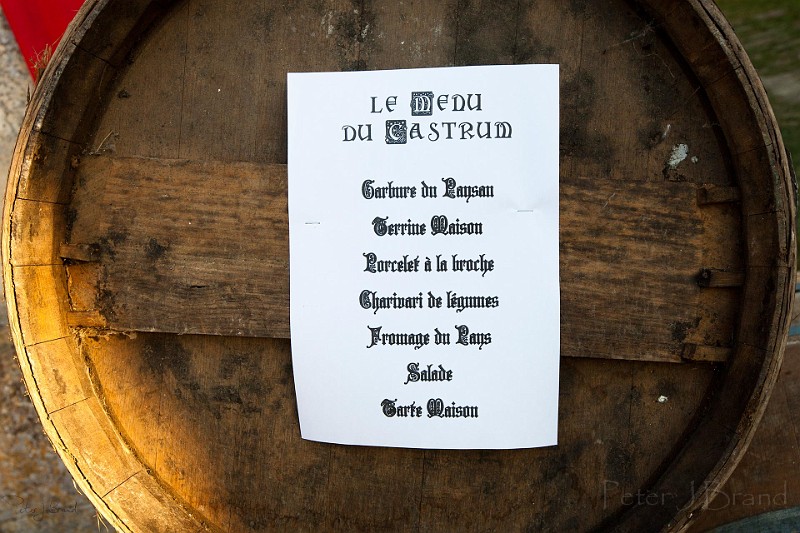 LE MENU
DU CASTRUM
Garbure du Paysan
Terrine Maison
Porcelet à la broche
Charivari de légumes
Fromage du Pays
Salade
Tarte Maison
Peter J Brand